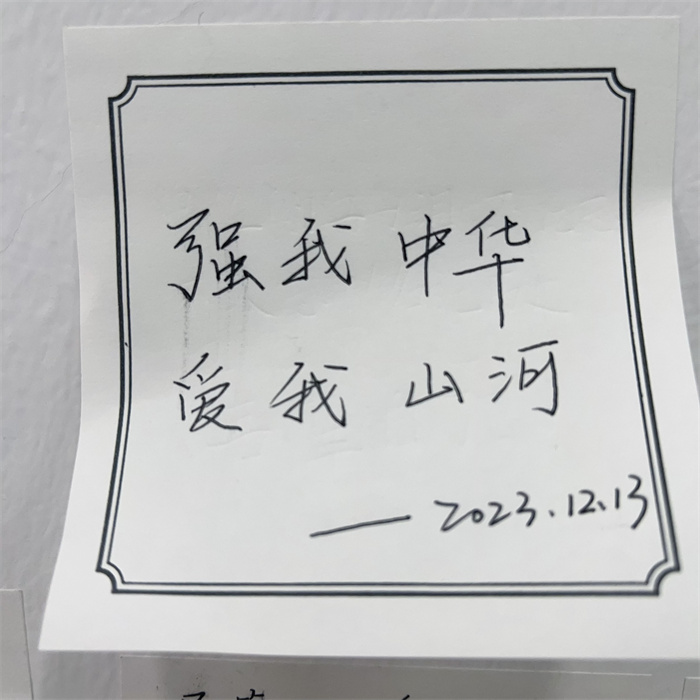 强我中华
爱我山河
——2023.12.13